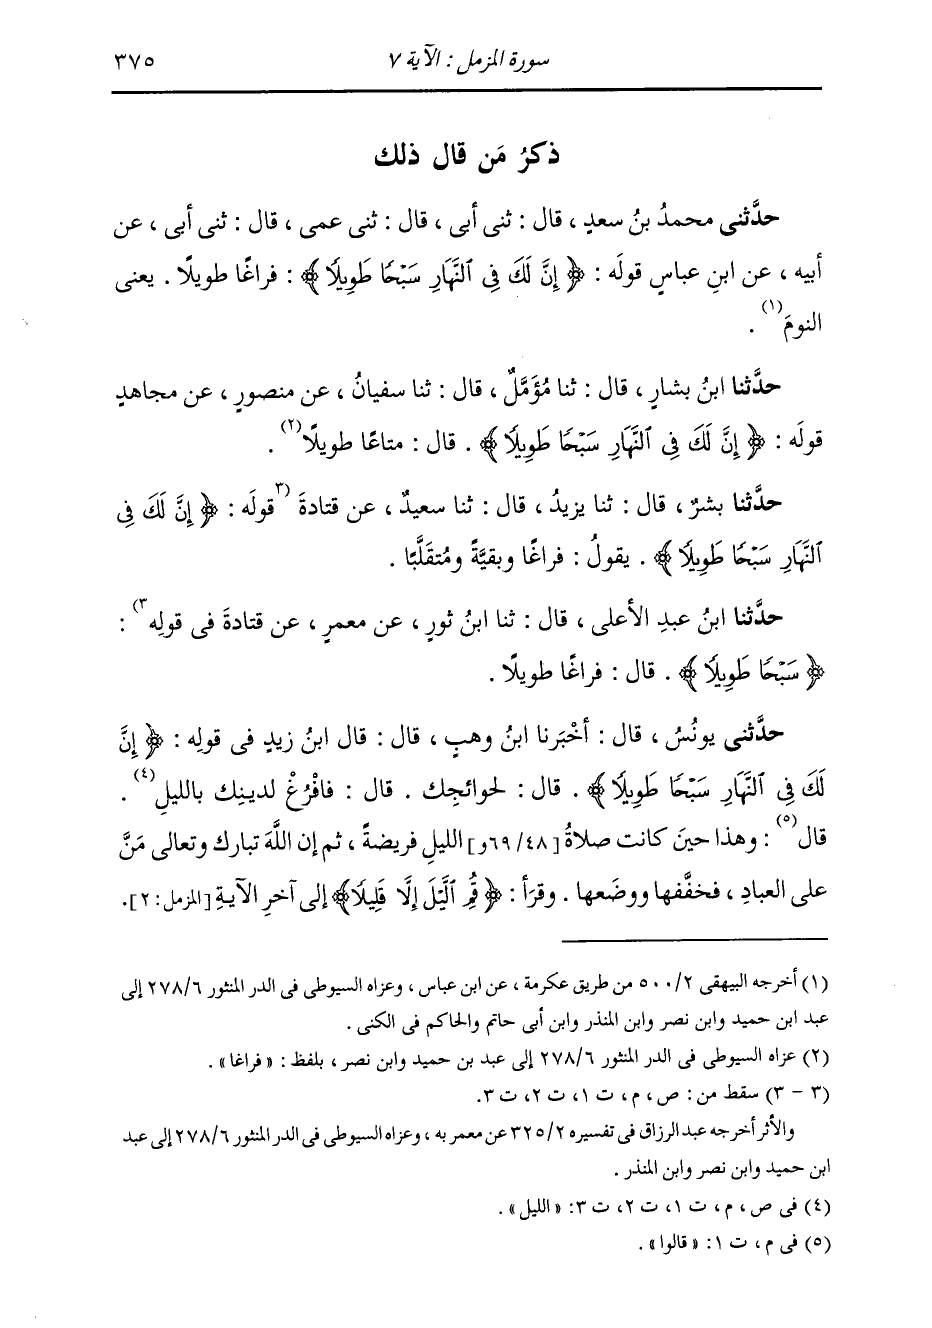 سورة المزمل : الآية ٧
٣٧٥
ذكرُ مَن قال ذلك
حدَّثنى محمدُ بنُ سعدٍ ، قال : ثنى أبى ، قال : ثنى عمى ، قال : ثنى أبى ، عن
أبيه ، عن ابنِ عباسٍ قولَه : ﴿ إِنَّ لَكَ فِي ٱلنَّهَارِ سَبْحًا طَوِيلًا ﴾ : فراغًا طويلًا . يعنى
النومَ(١) .
حدَّثنا ابنُ بشارٍ ، قال : ثنا مُؤَمَّلٌ ، قال : ثنا سفيانُ ، عن منصورٍ ، عن مجاهدٍ
قولَه : ﴿ إِنَّ لَكَ فِي ٱلنَّهَارِ سَبْحًا طَوِيلًا ﴾ . قال : متاعًا طويلًا(٢) .
حدَّثنا بشرٌ ، قال : ثنا يزيدُ ، قال : ثنا سعيدٌ ، عن قتادةَ (٣قولَه : ﴿ إِنَّ لَكَ فِي
ٱلنَّهَارِ سَبْحًا طَوِيلًا ﴾ . يقولُ : فراغًا وبقيَّةً ومُتقَلَّبًا .
حدَّثنا ابنُ عبدِ الأعلى ، قال : ثنا ابنُ ثورٍ ، عن معمرٍ ، عن قتادةَ فى قولِه٣) :
﴿ سَبْحًا طَوِيلًا ﴾ . قال : فراغًا طويلًا .
حدَّثنى يونُسُ ، قال : أخْبَرنا ابنُ وهبٍ ، قال : قال ابنُ زيدٍ فى قولِه : ﴿ إِنَّ
لَكَ فِي ٱلنَّهَارِ سَبْحًا طَوِيلًا ﴾ . قال : لحوائجِك . قال : فافْرُغْ لدينِك بالليلِ(٤) .
قال(٥) : وهذا حينَ كانت صلاةُ [٦٩/٤٨و] الليلِ فريضةً ، ثم إن اللَّهَ تبارك وتعالى مَنَّ
على العبادِ ، فخفَّفها ووضَعها . وقرَأ : ﴿ قُمِ ٱلَّيْلَ إِلَّا قَلِيلًا﴾ إلى آخرِ الآيةِ [المزمل : ٢] .
(١) أخرجه البيهقى ٥٠٠/٢ من طريق عكرمة ، عن ابن عباس ، وعزاه السيوطى فى الدر المنثور ٢٧٨/٦ إلى
عبد ابن حميد وابن نصر وابن المنذر وابن أبى حاتم والحاكم فى الكنى .
(٢) عزاه السيوطى فى الدر المنثور ٢٧٨/٦ إلى عبد بن حميد وابن نصر ، بلفظ : « فراغا » .
(٣ - ٣) سقط من : ص ، م ، ت ١، ت ٢، ت ٣.
والأثر أخرجه عبد الرزاق فى تفسيره ٣٢٥/٢ عن معمر به ، وعزاه السيوطى فى الدر المنثور ٢٧٨/٦ إلى عبد
ابن حميد وابن نصر وابن المنذر .
(٤) فى ص ، م ، ت ١، ت ٢، ت ٣: « الليل » .
(٥) فى م ، ت ١: « قالوا » .